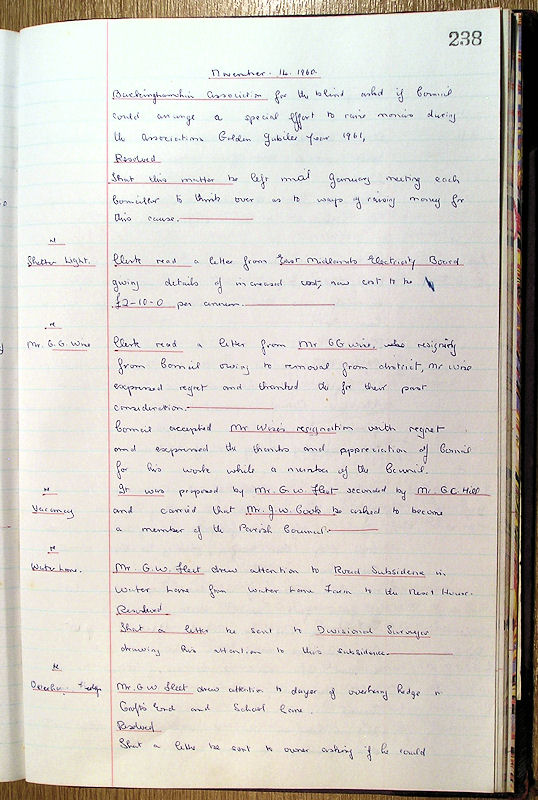 238
November. 14. 1960.
Buckinghamshire Association for the blind asked if Council
could arrange a special effort to raise monies during
the associations Golden Jubilee year 1961,
Resolved
That this matter be left until January meeting each
Councillor to think over as to ways of raising money for
this cause.
re
Shelter Light. Clerk read a letter from East Midlands Electricity Board
giving details of increased cost, now cost to be
£2-10-0 per annum.
re
Mr. G.G. Wise Clerk read a letter from Mr GG Wise, resigning
from Council owing to removal from district, Mr Wise
expressed regret and thanked the for their past
consideration.
Council accepted Mr Wise's resignation with regret
and expressed the thanks and appreciation of Council
for his work while a member of the Council.
re
It was proposed by Mr. G.W. Fleet seconded by Mr. G.C. Hill
Vacancy and carried that Mr. J.W. Cook be asked to become
a member of the Parish Council.
re
Water Lane. Mr. G.W. Fleet drew attention to Road Subsidence in
Water Lane from Water Lane Farm to the next House.
Resolved
That a letter be sent to Divisional Surveyor
drawing his attention to this subsidence.
re
Hedge Mr. G.W Fleet drew attention to danger of overhang hedge in
Crofts End and School Lane.
Resolved
That a letter be sent to owner asking if he could